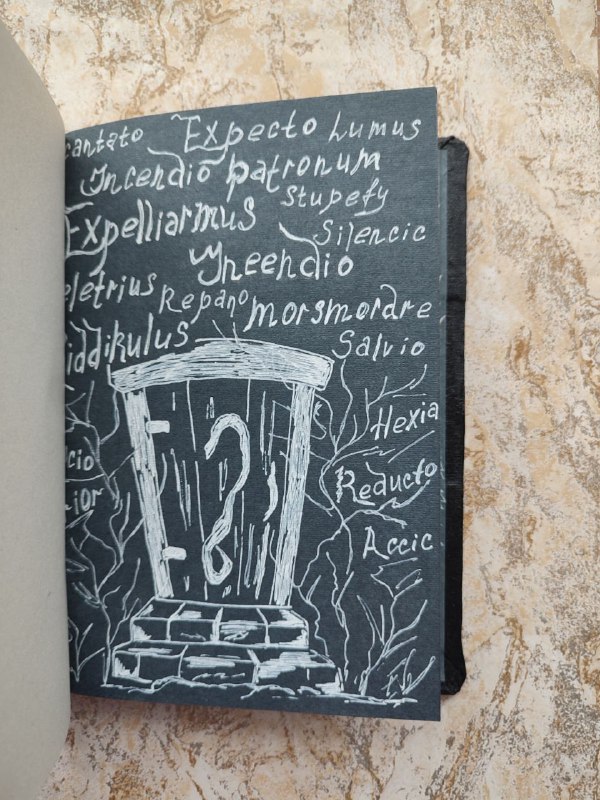 cantato Expecto Lumus
Incendio patronum
Stupefy
Expelliarmus
Silencic
Yneendio
eletrius Repano morsmordre
iddikulus Salvio
Hexia
cio Reducto
ior
Accic